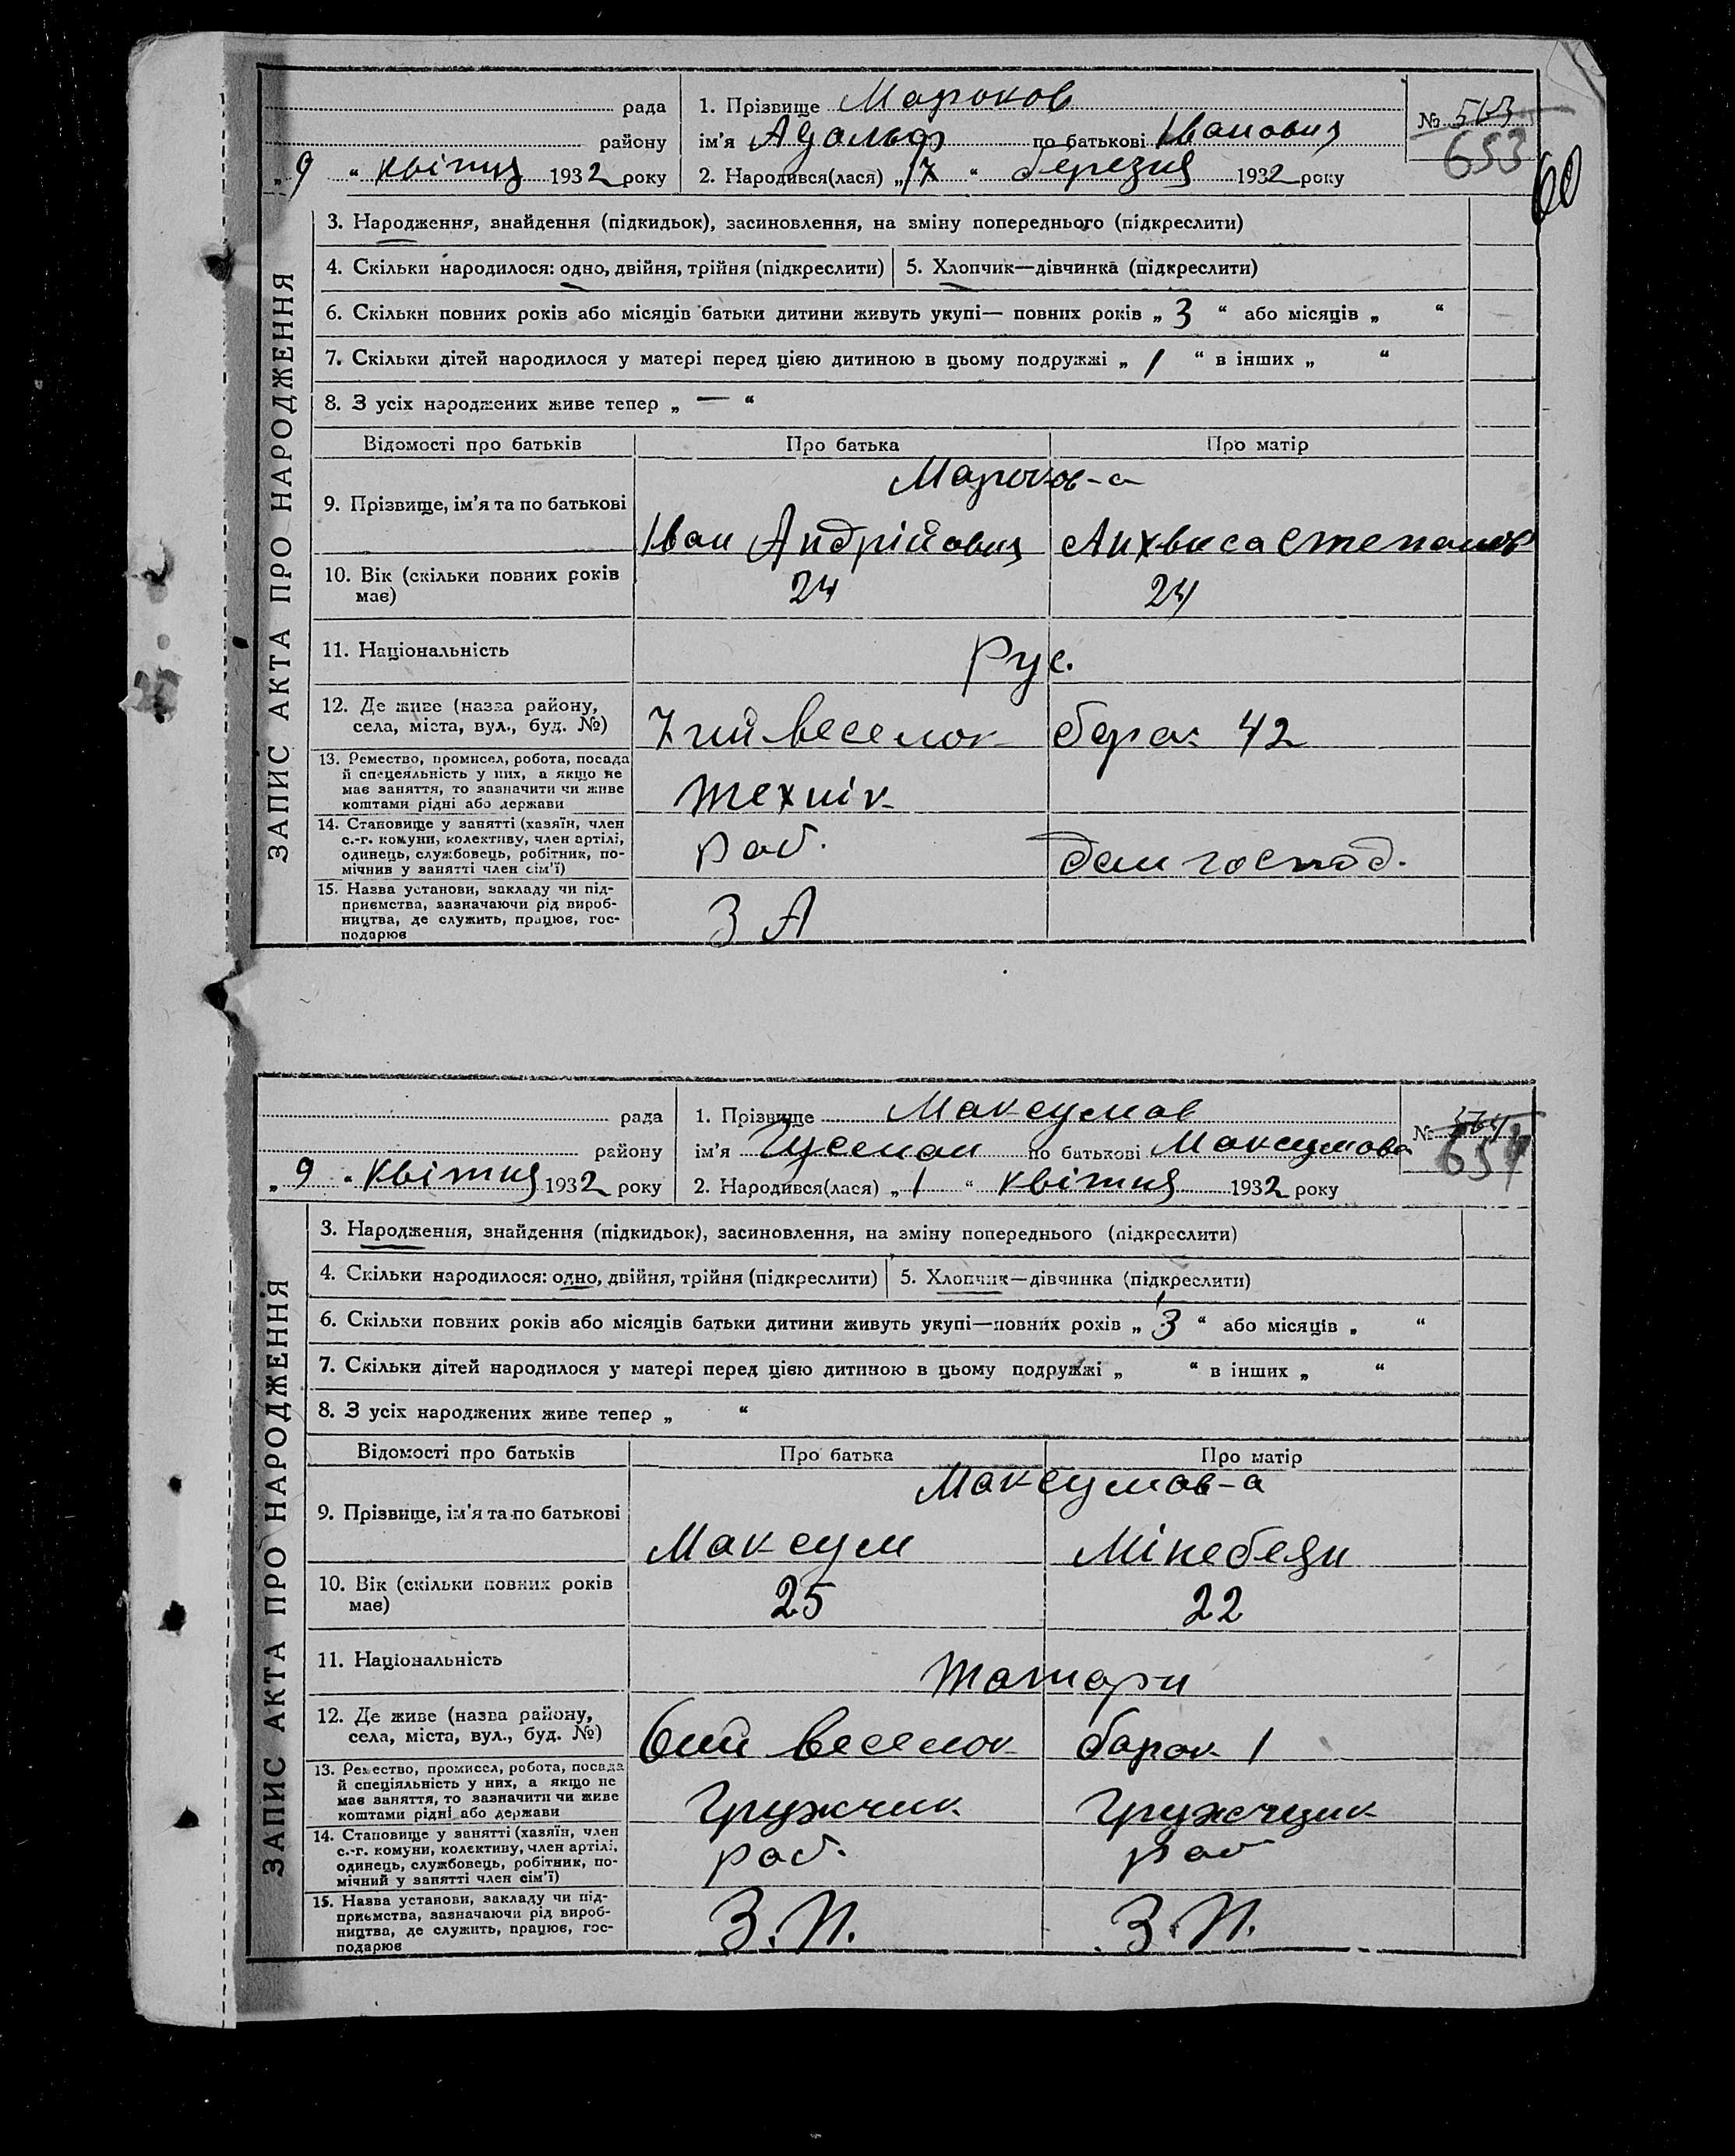 рада
1. Прізвище Мароков
№ 563
653
60
району
ім'я Адольф по батькові Іванович
„9“ квітня 1932 року
2. Народився(лася) „17“ березня 1932 року
ЗАПИС АКТА ПРО НАРОДЖЕННЯ
3. Народження, знайдення (підкидьок), засиновлення, на зміну попереднього (підкреслити)
4. Скільки народилося: одно, двійня, трійня (підкреслити)
5. Хлопчик—дівчинка (підкреслити)
6. Скільки повних років або місяців батьки дитини живуть укупі— повних років „3“ або місяців „ “
7. Скільки дітей народилося у матері перед цією дитиною в цьому подружжі „1“ в інших „ “
8. З усіх народжених живе тепер „—“
Відомості про батьків
Про батька
Про матір
9. Прізвище, ім'я та по батькові
Мароков-а
Іван Андрійович
Степанов
10. Вік (скільки повних років
має)
24
24
11. Національність
Рус.
12. Де живе (назва району,
села, міста, вул., буд. №)
7 ий веселок
барак 42
13. Ремество, промисел, робота, посада
й спецеяльність у них, а якщо не
має заняття, то зазначити чи живе
коштами рідні або держави
технік
14. Становище у занятті (хазяїн, член
с.-г. комуни, колективу, член артілі,
одинець, службовець, робітник, по-
мічнив у занятті член сім'ї)
роб.
дом господ.
15. Назва установи, закладу чи під-
приємства, зазначаючи рід вироб-
ництва, де служить, працює, гос-
подарює
З А
рада
1. Прізвище Максумов
№ 564
654
району
ім'я по батькові Максумова
„9“ квітня 1932 року
2. Народився(лася) „1“ квітня 1932 року
ЗАПИС АКТА ПРО НАРОДЖЕННЯ
3. Народження, знайдення (підкидьок), засиновлення, на зміну попереднього (підкреслити)
4. Скільки народилося: одно, двійня, трійня (підкреслити)
5. Хлопчик—дівчинка (підкреслити)
6. Скільки повних років або місяців батьки дитини живуть укупі—повних років „3“ або місяців „ “
7. Скільки дітей народилося у матері перед цією дитиною в цьому подружжі „ “ в інших „ “
8. З усіх народжених живе тепер „ “
Відомості про батьків
Про батька
Про матір
9. Прізвище, ім'я та по батькові
Максумов-а
Максум
10. Вік (скільки повних років
має)
25
22
11. Національність
татари
12. Де живе (назва району,
села, міста, вул., буд. №)
6ий веселок
барак 1
13. Ремество, промисел, робота, посада
й спеціяльність у них, а якщо не
має заняття, то зазначити чи живе
коштами рідні або держави
Гружчик
Гружчщик
14. Становище у занятті (хазяїн, член
с.-г. комуни, колективу, член артілі,
одинець, службовець, робітник, по-
мічний у занятті член сім'ї)
роб.
роб
15. Назва установи, закладу чи під-
приємства, зазначаючи рід вироб-
ництва, де служить, працює, гос-
подарює
З.П.
З.П.